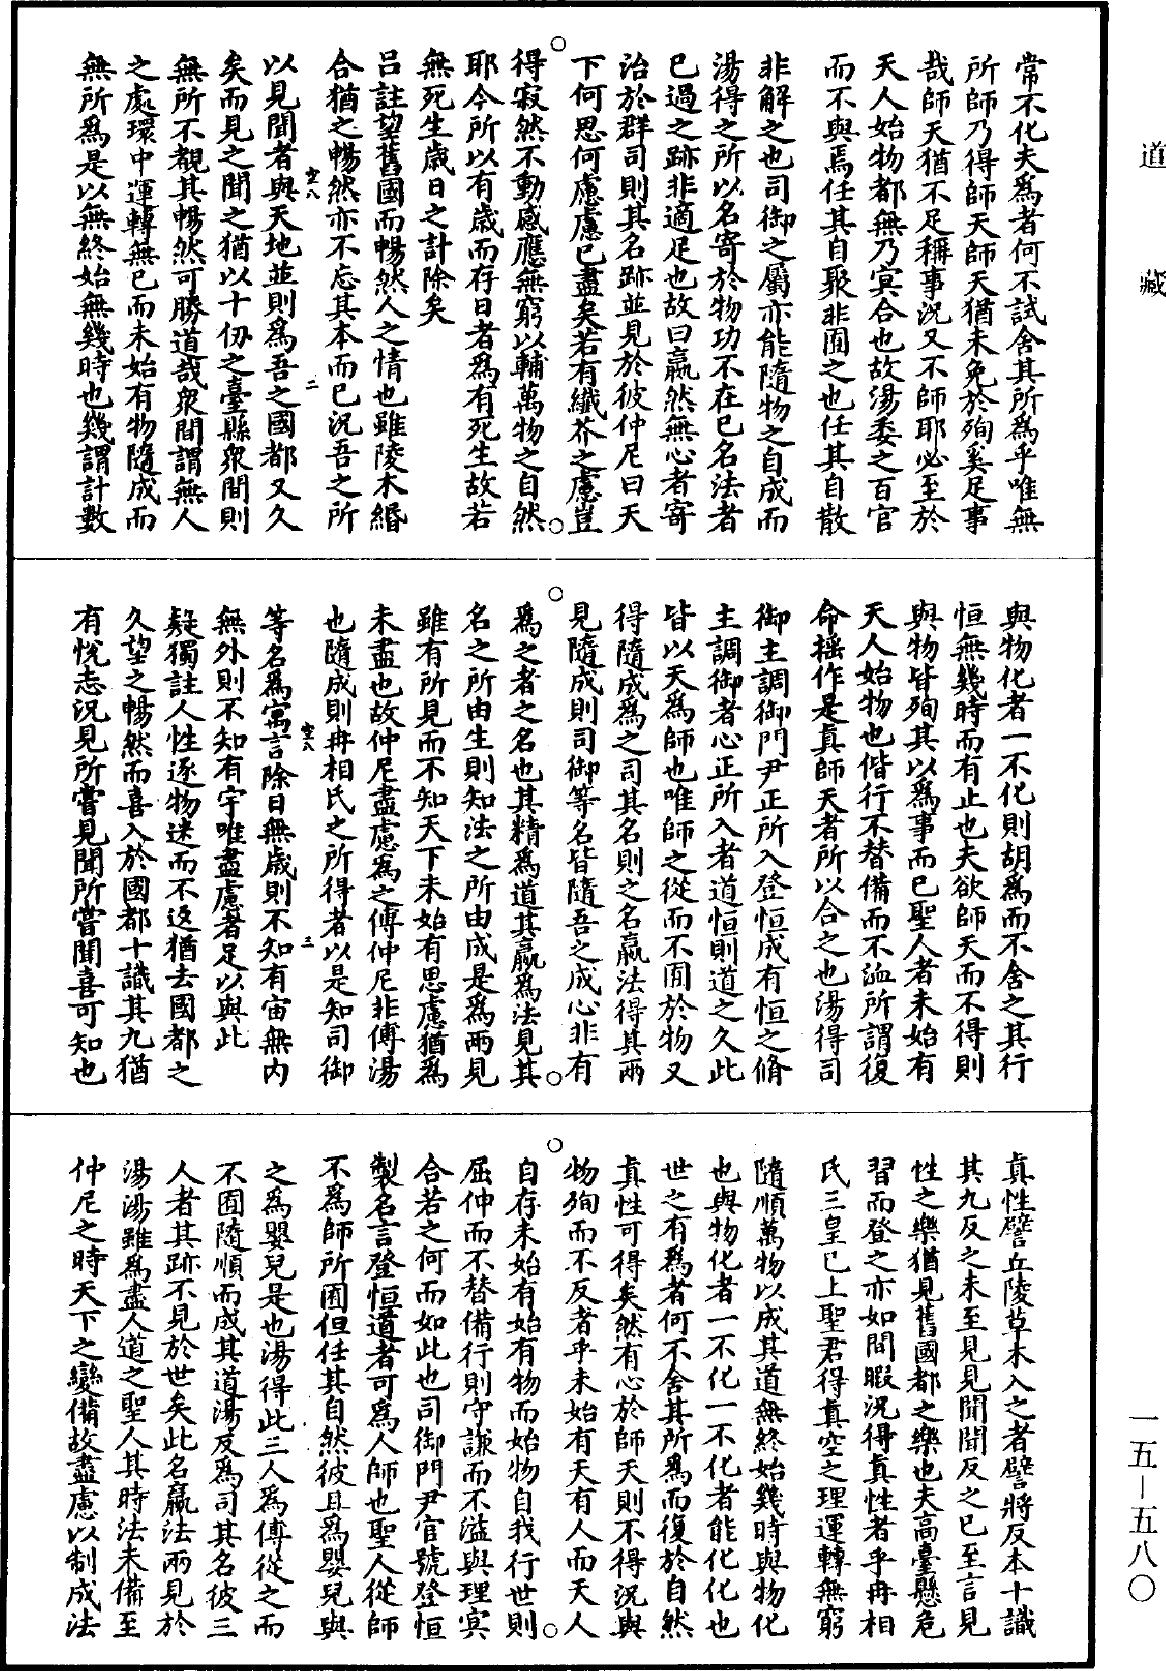 道藏
常不化夫爲者何不試舍其所爲乎唯無
所師乃得師天師天猶未免於殉奚足事
哉師天猶不足稱事況又不師耶必至於
天人始物都無乃冥合也故湯委之百官
而不與焉任其自聚非囿之也任其自散
非解之也司御之屬亦能隨物之自成而
湯得之所以名寄於物功不在己名法者
已過之跡非適足也故曰嬴然無心者寄
治於群司則其名跡並見於彼仲尼曰天
下何思何慮慮已盡矣若有纖芥之慮豈
得寂然不動感應無窮以輔萬物之自然
耶今所以有歲而存日者爲有死生故若
無死生歲日之計除矣
呂註望舊國而暢然人之情也雖陵木緡
合猶之暢然亦不忘其本而已況吾之所
空八
二
以見聞者與天地並則爲吾之國都又久
矣而見之聞之猶以十仞之臺縣衆間則
無所不覩其暢然可勝道哉衆間謂無人
之處環中運轉無已而未始有物隨成而
無所爲是以無終始無幾時也幾謂計數
與物化者一不化則胡爲而不舍之其行
恒無幾時而有止也夫欲師天而不得則
與物皆殉其以爲事而已聖人者未始有
天人始物也偕行不替備而不洫所謂復
命搖作是眞師天者所以合之也湯得司
御主調御門尹正所入登恒成有恒之脩
主調御者心正所入者道恒則道之久此
皆以天爲師也唯師之從而不囿於物又
得隨成爲之司其名則之名嬴法得其兩
見隨成則司御等名皆隨吾之成心非有
爲之者之名也其精爲道其嬴爲法見其
名之所由生則知法之所由成是爲兩見
雖有所見而不知天下未始有思慮猶爲
未盡也故仲尼盡慮爲之傅仲尼非傅湯
也隨成則冉相氏之所得者以是知司御
空八
三
等名爲寓言除日無歲則不知有宙無內
無外則不知有宇唯盡慮者足以與此
疑獨註人性逐物迷而不返猶去國都之
久望之暢然而喜入於國都十識其九猶
有悅志況見所嘗見聞所嘗聞喜可知也
眞性譬丘陵草木入之者譬將反本十識
其九反之未至見見聞聞反之已至言見
性之樂猶見舊國都之樂也夫高臺懸危
習而登之亦如間暇況得眞性者乎冉相
氏三皇已上聖君得眞空之理運轉無窮
隨順萬物以成其道無終始幾時與物化
也與物化者一不化一不化者能化化也
世之有爲者何不舍其所爲而復於自然
眞性可得矣然有心於師天則不得況與
物殉而不反者乎未始有天有人而天人
自存未始有始有物而始物自我行世則
屈伸而不替備行則守謙而不溢與理㝠
合若之何而如此也司御門尹官號登恒
製名言登恒道者可爲人師也聖人從師
不爲師所囿但任其自然彼且爲嬰兒與
之爲嬰兒是也湯得此三人爲傅從之而
不囿隨順而成其道湯反爲司其名彼三
人者其跡不見於世矣此名嬴法兩見於
湯湯雖爲盡人道之聖人其時法未備至
仲尼之時天下之變備故盡慮以制成法
一五—五八〇